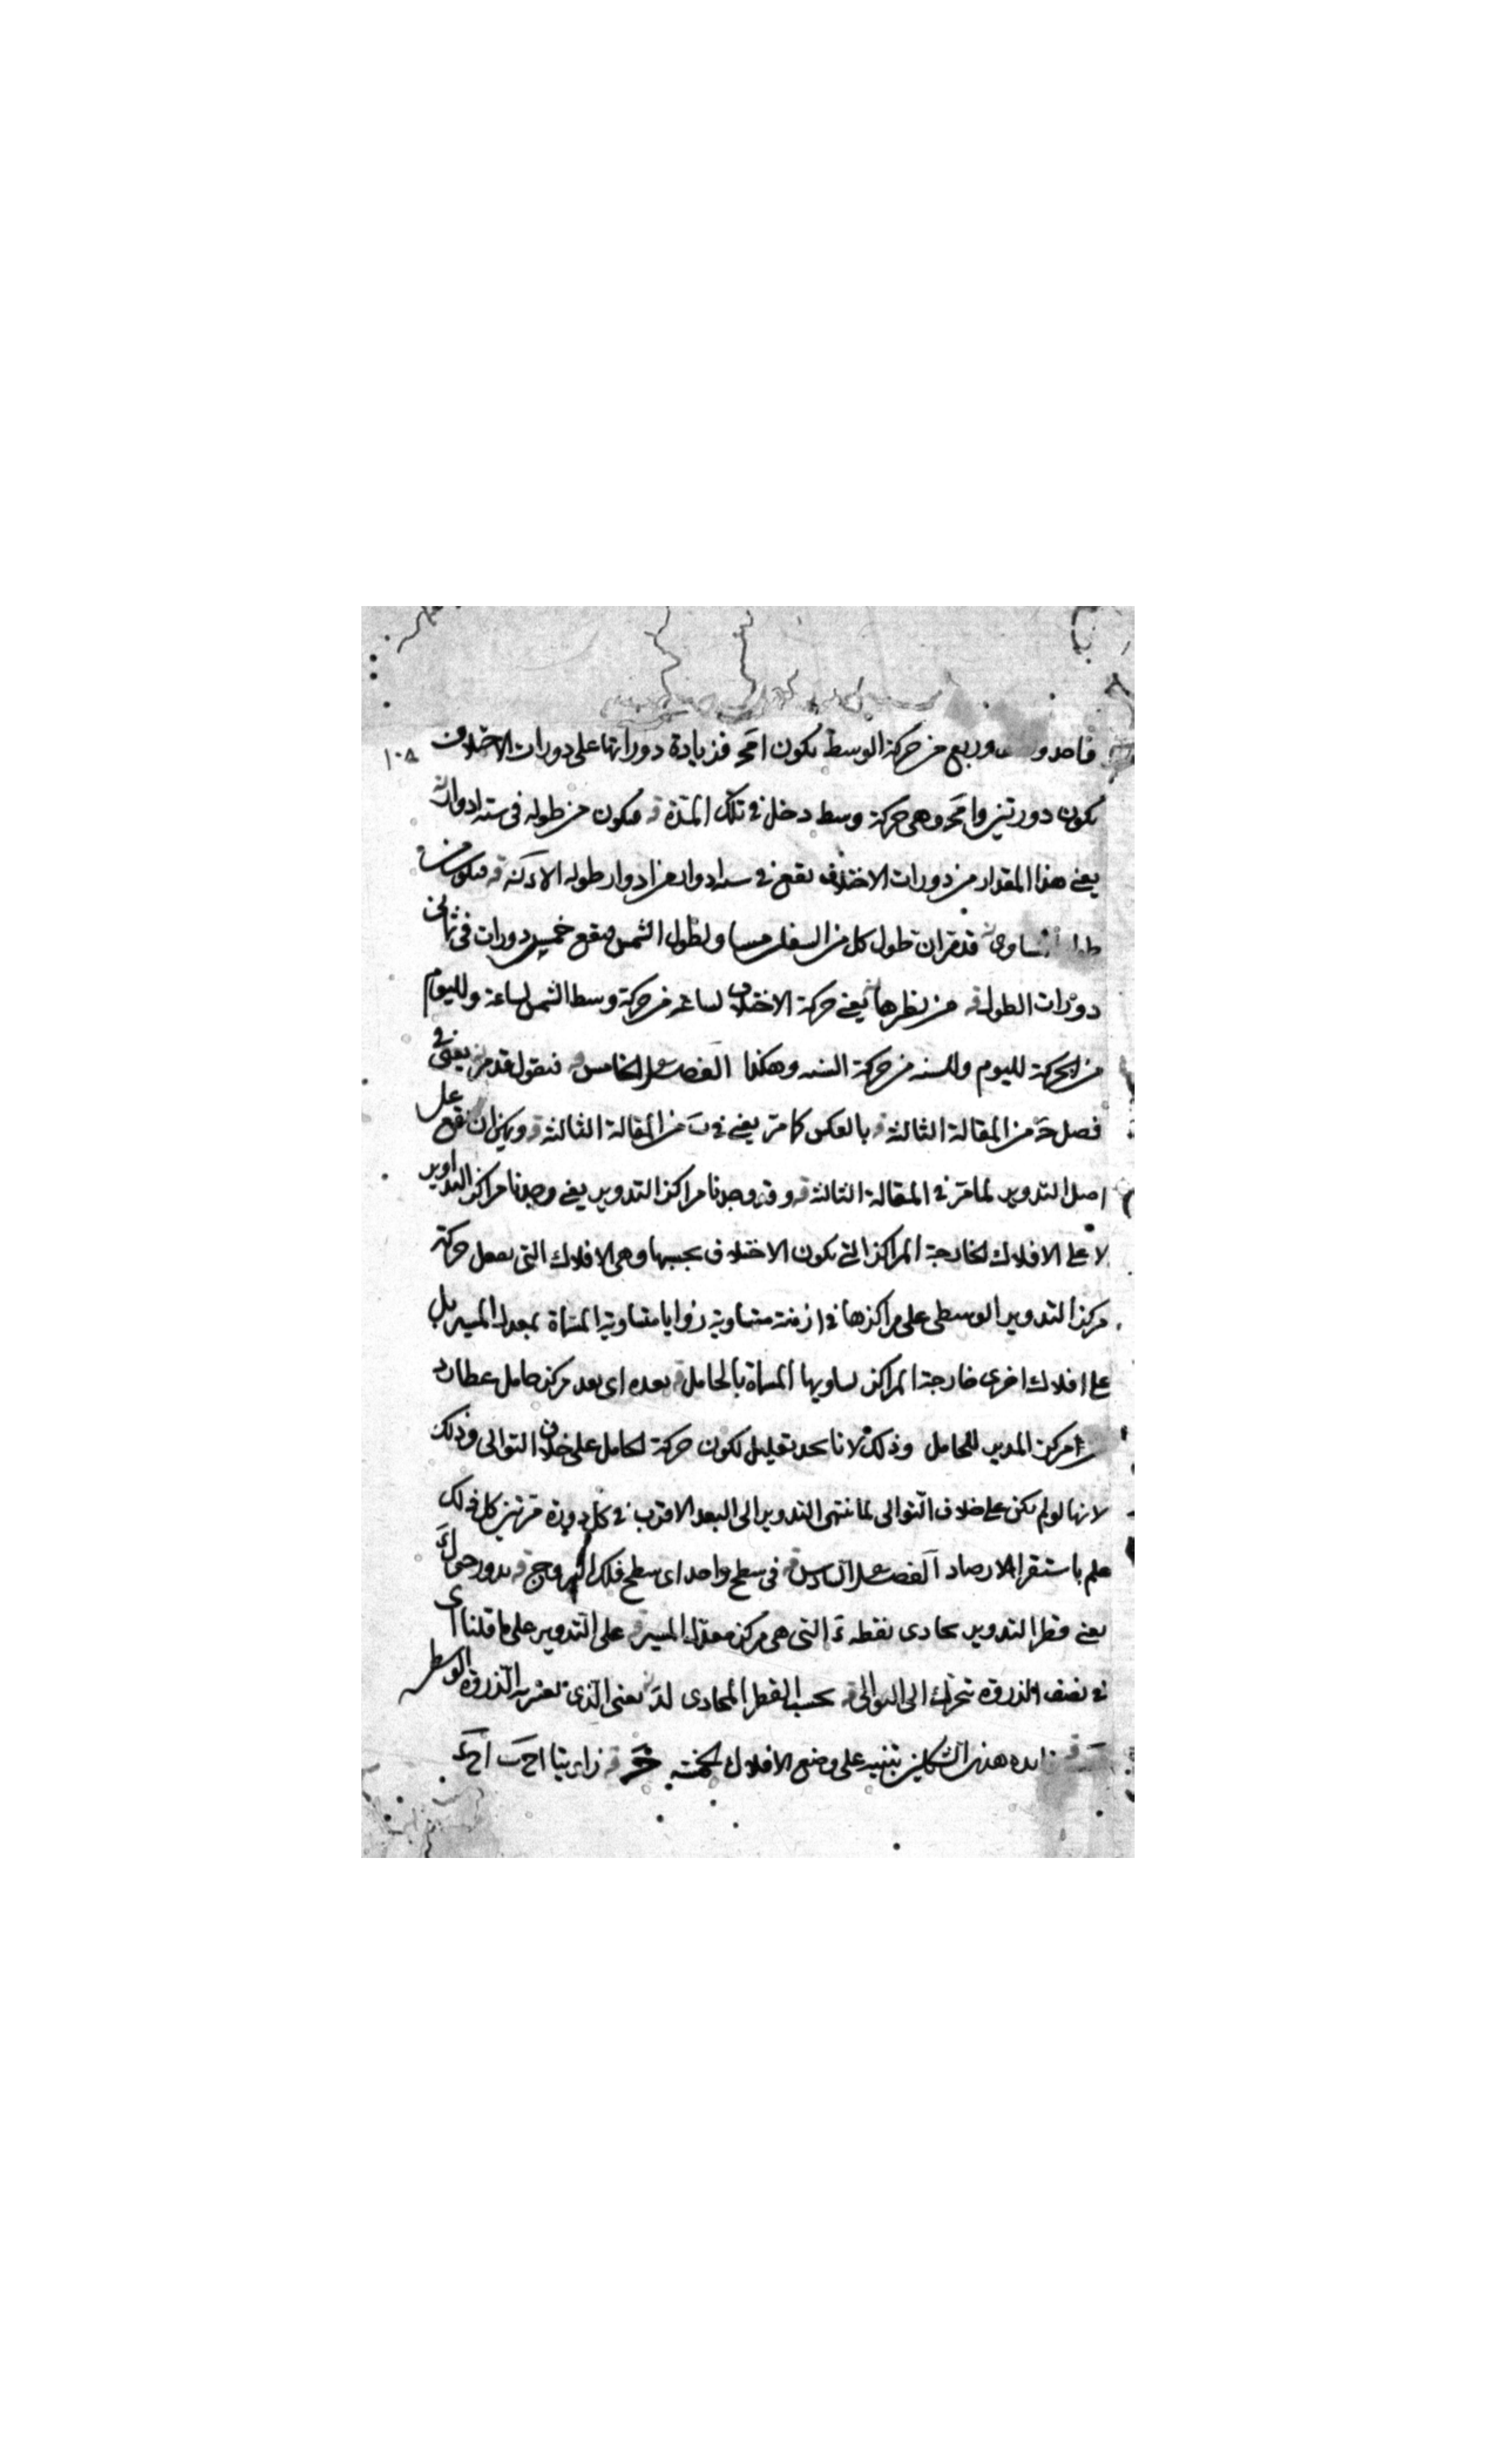 وربع من حركة الوسط يكون فزيادة دوراتها على دورات الاختلاف
١٠٨
يكون دورتين وهى حركة وسط دخل فى تلك المدة فيكون من طوله فى ستة ادوار
يعنى هذا المقدار من دورات الاختلاف يقع فى ستة ادوار من ادوار طوله
قد مر ان طول كل من السفليين مساو لطول الشمس فيقع خمس دورات فى ثمانى
دورات الطول من نظرها يعنى حركة الاختلاف لساعة من حركة وسط الشمس لساعة ولليوم
من الحركة لليوم وللسنه من حركة السنه وهكذا الفصل الخامس فنقول قد مر يعنى فى
فصل من المقالة الثالثة بالعكس كما مر يعنى فى من المقالة الثالثة ويمكن ان يقع على
اصل التدوير لما مر فى المقالة الثالثة وقد وجدنا مراكز التدوير يعنى وجدنا مراكز التداوير
لا على الافلاك الخارجة المراكز التى يكون الاختلاف بحسبها وهى الافلاك التى يفعل حركة
مركز التدوير الوسطى على مراكزها فى ازمنة متساوية زوايا متساوية المسماة بمعدل المسير بل
على افلاك اخرى خارجة المراكز يساويها المسماة بالحامل بعده اى بعد مركز حامل عطارد
مركز المدير للحامل وذلك لانا نحد تعليل لكون حركة الحامل على خلاف التوالى وذلك
لانها لو لم يكن على خلاف التوالى لما انتهى التدوير الى البعد الاقرب فى كل دورة مرتين كل ذلك
علم باستقراء الارصاد الفصل السادس فى سطح واحد اى سطح فلك البروج يدور
يعنى قطر التدوير يحاذى نقطة التى هى مركز معدل المسير على التدوير على ما قلنا اى
فى نصف الذروة يتحرك الى التوالى بحسب القطر المحاذى يعنى الذى يعتبر به الذروة الوسطى
هذين الشكلين تنبيه على وضع الافلاك زاويتا